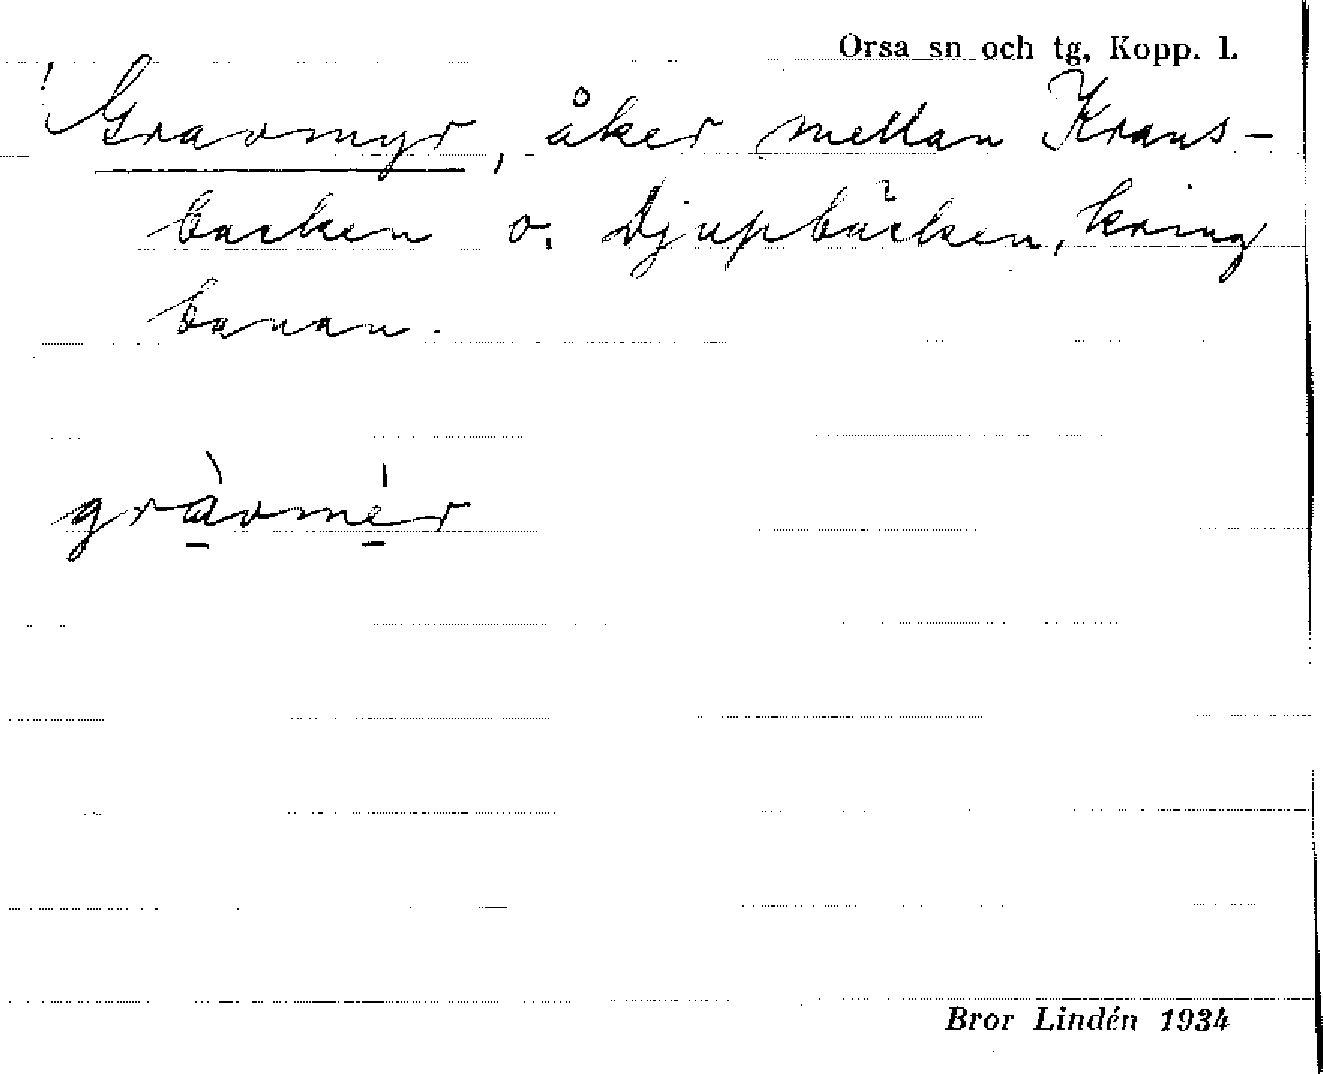 Orsa sn och tg, Kopp. l.
! Gravmyr, åker mellan Krans-
backen o. Djupbäcken, kring
banan.
gràvmér
Bror Lindén 1934